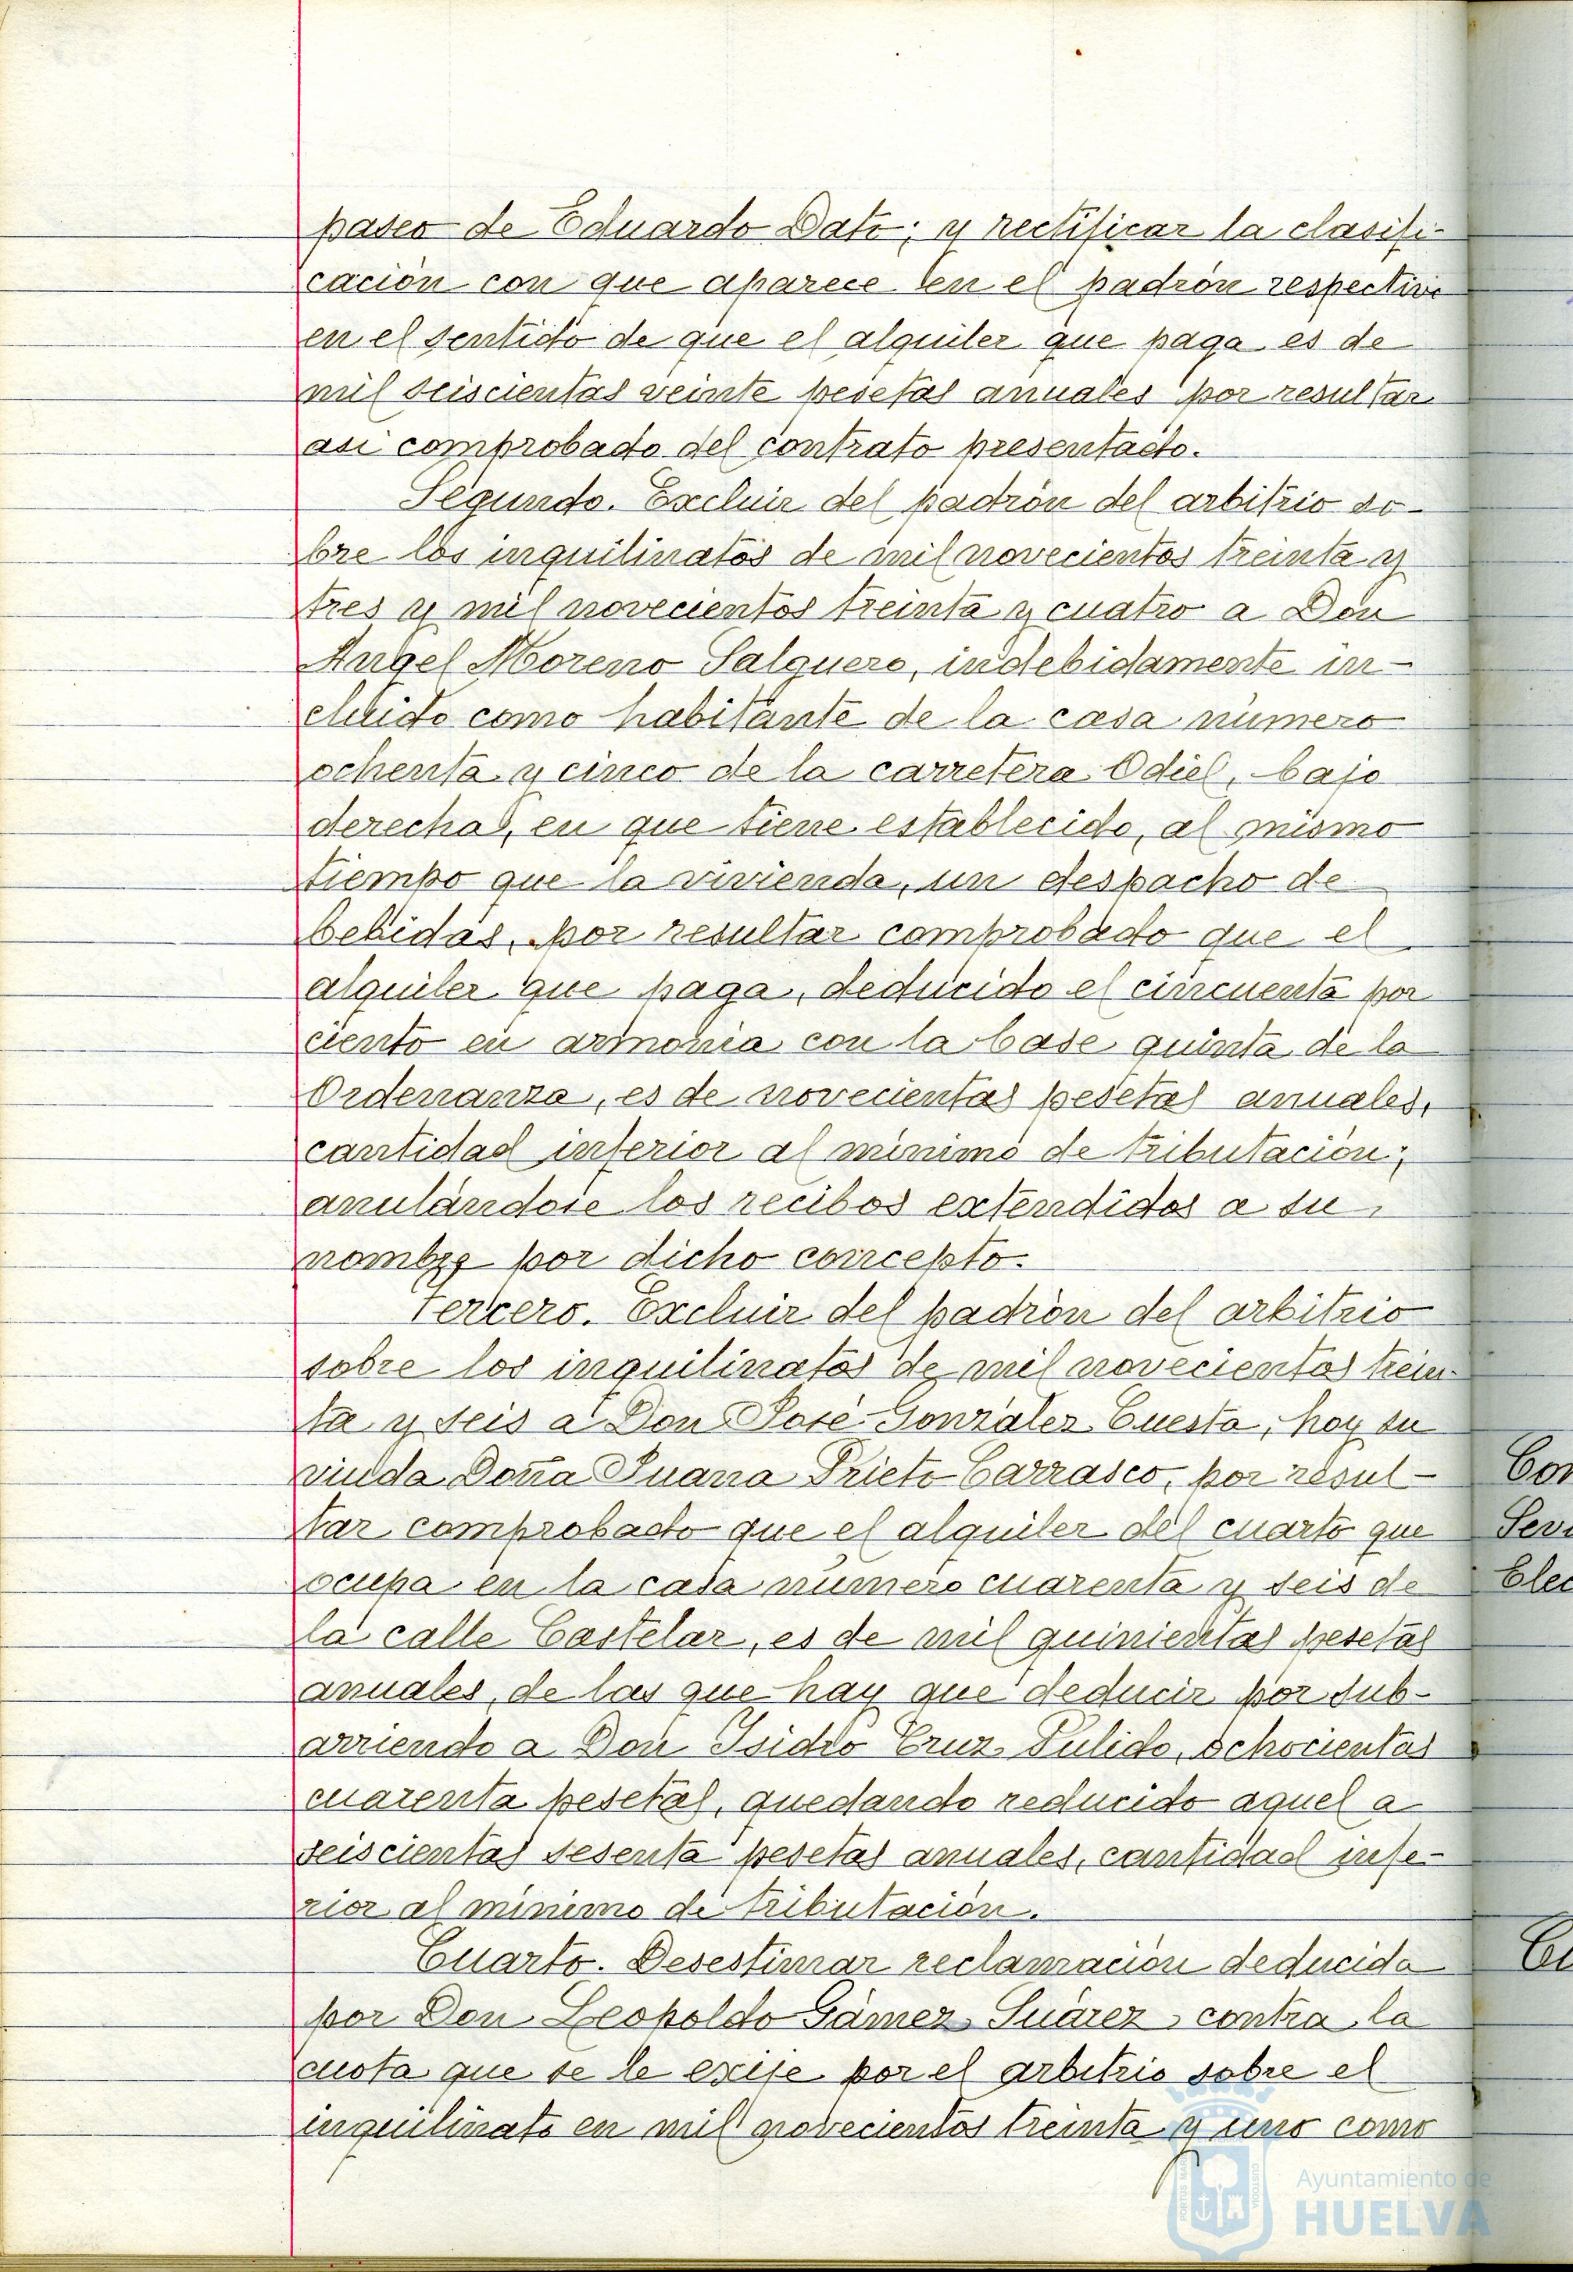 paseo de Eduardo Dato; y rectificar la clasifi-
cación con que aparece en el padrón respectivo
en el sentido de que el alquiler que paga es de
mil seiscientas veinte pesetas anuales por resultar
asi comprobado del contrato presentado.
Segundo. Excluir del padrón del arbitrio so-
bre los inquilinatos de mil novecientos treinta y
tres y mil novecientos treinta y cuatro a Don
Angel Moreno Salguero, indebidamente in-
cluido como habitante de la casa número
ochenta y cinco de la carretera Odiel, bajo
derecha, en que tiene establecido, al mismo
tiempo que la vivienda, un despacho de
bebidas, por resultar comprobado que el
alquiler que paga, deducido el cincuenta por
ciento en armonia con la base quinta de la
Ordenanza, es de novecientas pesetas anuales,
cantidad inferior al minimo de tributación;
anulándose los recibos extendidos a su
nombre por dicho concepto.
Tercero. Excluir del padrón del arbitrio
sobre los inquilinatos de mil novecientos trein-
ta y seis a Don José González Cuesta, hoy su
viuda Doña Juana Prieto Carrasco, por resul-
tar comprobado que el alquiler del cuarto que
ocupa en la casa número cuarenta y seis de
la calle Castelar, es de mil quinientas pesetas
anuales, de las que hay que deducir por sub-
arriendo a Don Isidro Cruz Pulido, ochocientas
cuarenta pesetas, quedando reducido aquel a
seiscientas sesenta pesetas anuales, cantidad infe-
rior al minimo de tributación.
Cuarto. Desestimar reclamación deducida
por Don Leopoldo Gámez Suárez contra la
cuota que se le exije por el arbitrio sobre el
inquilinato en mil novecientos treinta y uno como
Con
Sevi
Elec
Cu
Ayuntamiento de
HUELVA